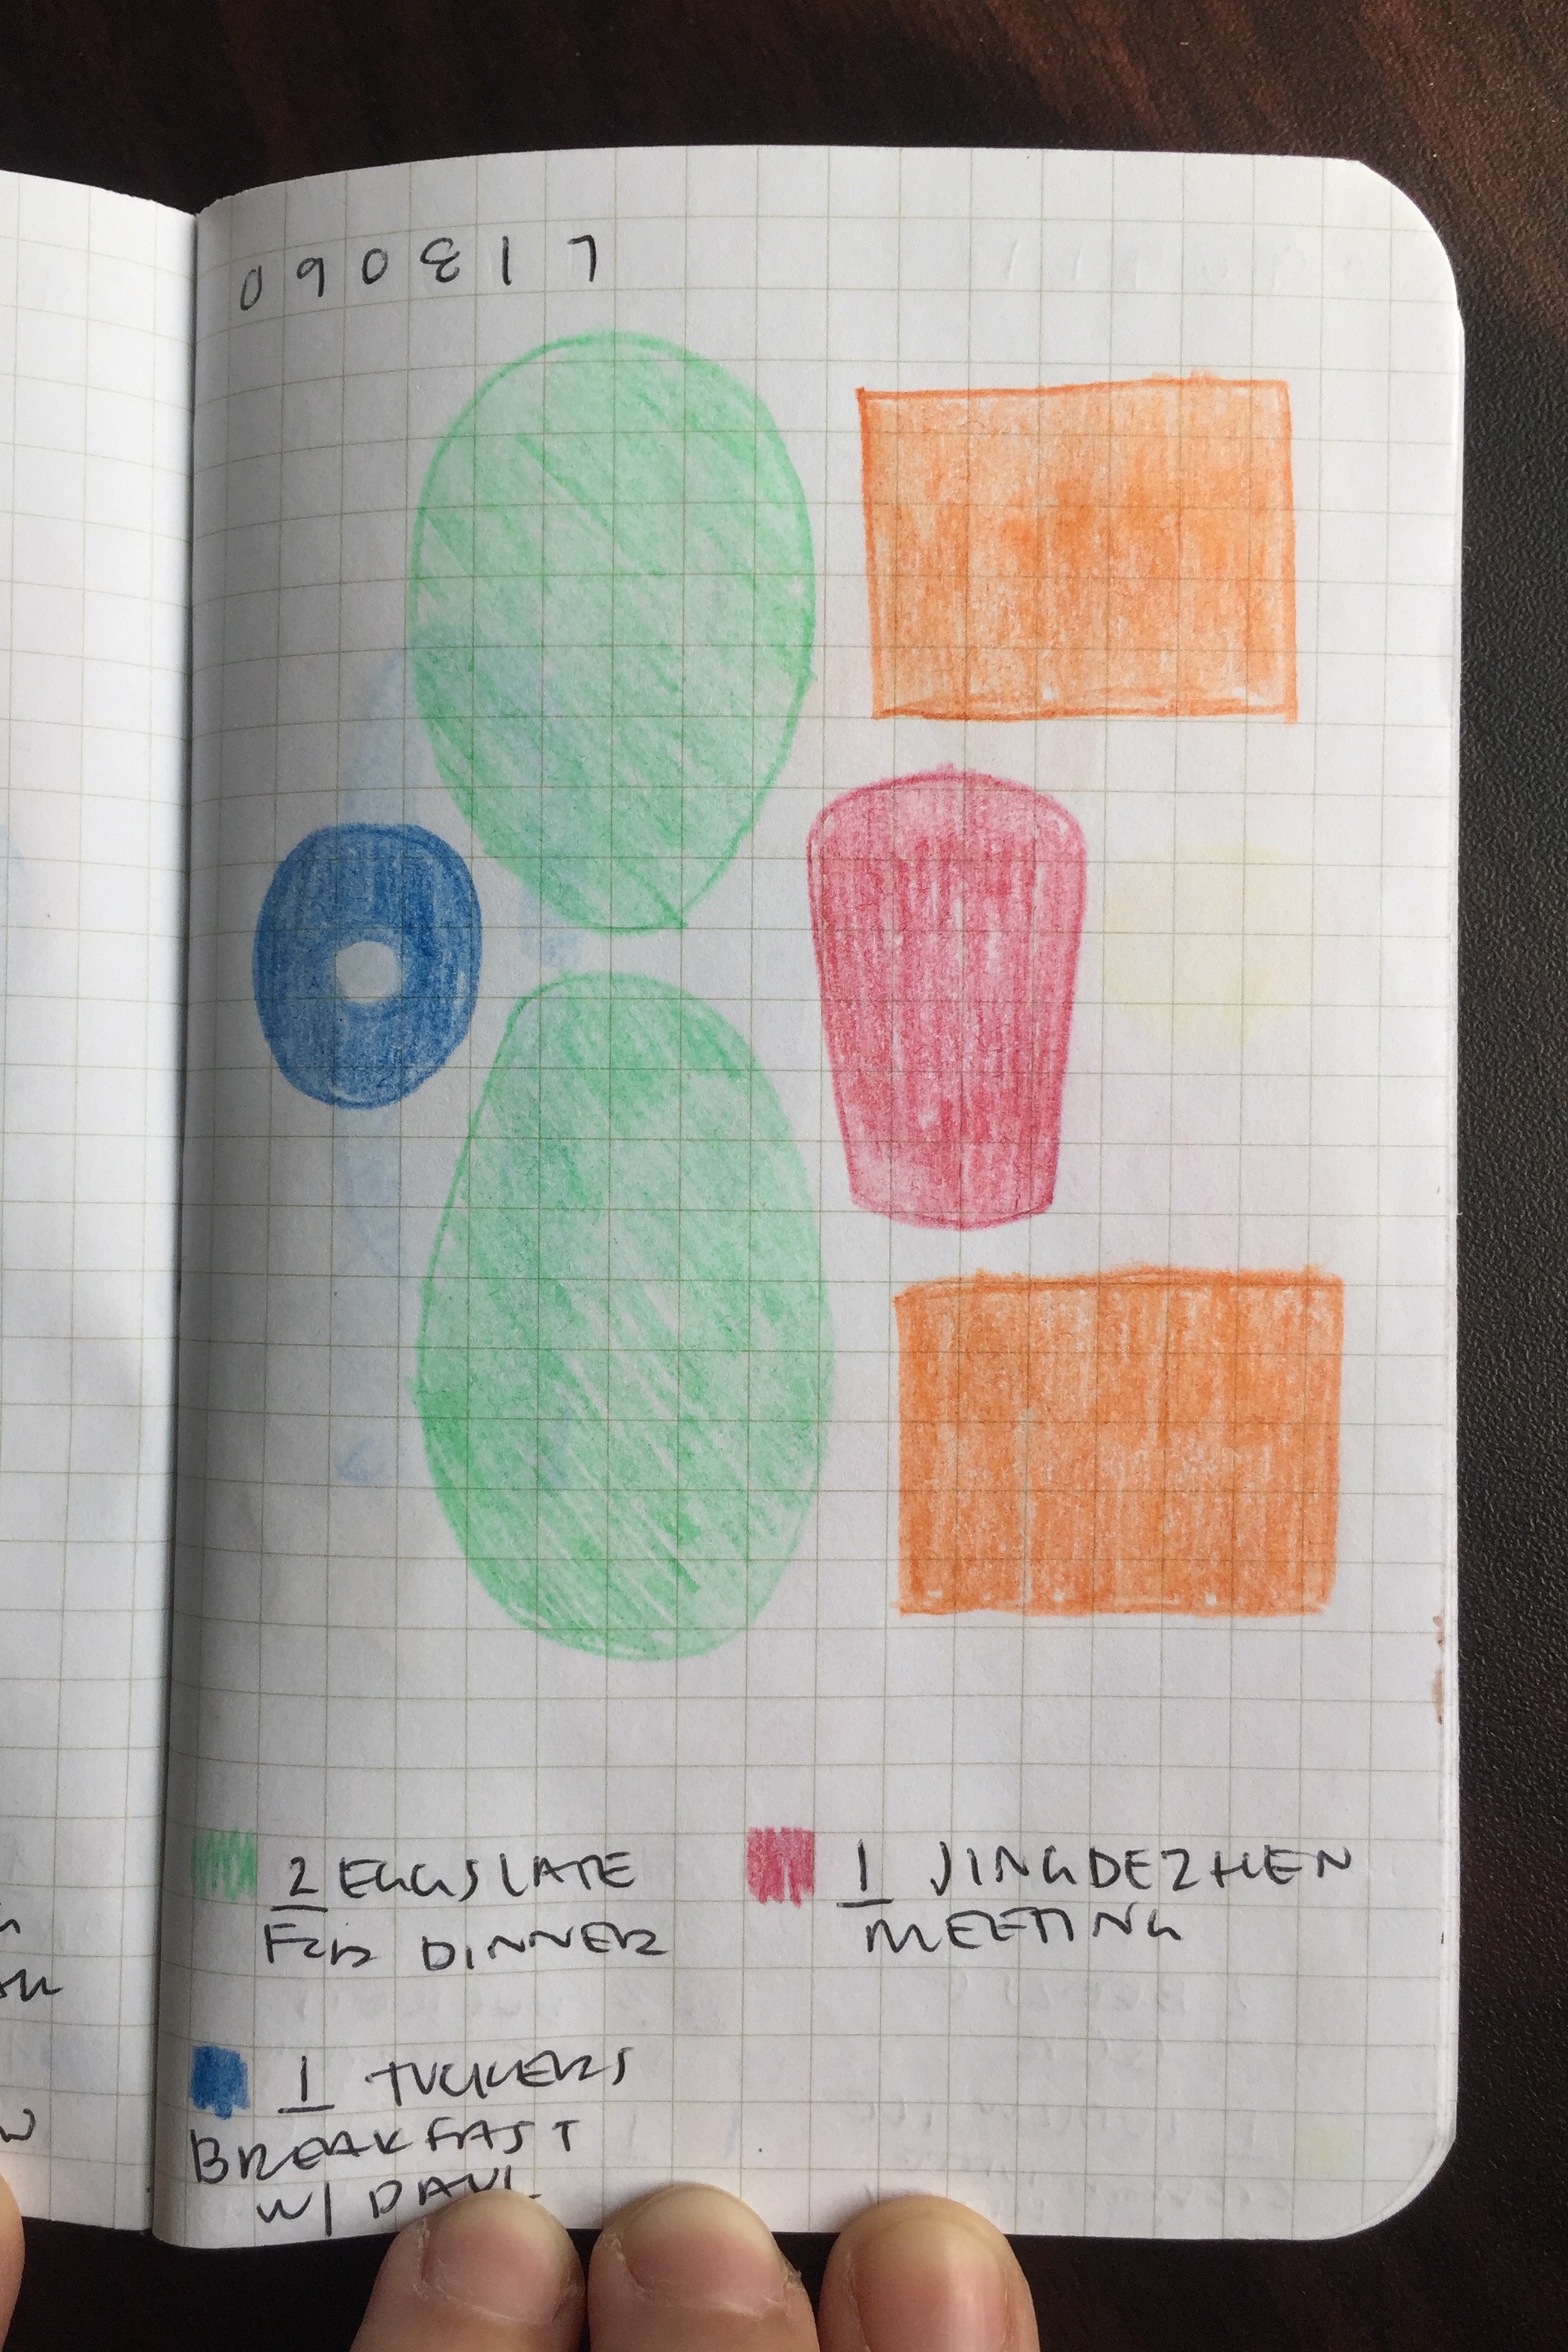 090817
2 EGGS LATE
FOR DINNER
1 JINGDEZHEN
MEETING
1 TUCKERS
BREAKFAST
W/